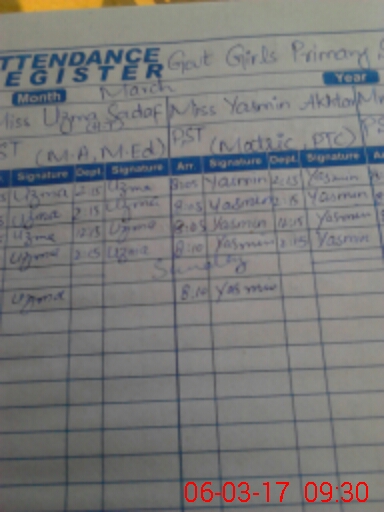 TTENDANCE
EGISTER Govt Girls Primary
Month March Year
Miss Uzma Sadaf Miss Yasmin Akhtar
ST (M.A, M.Ed) PST (Matric, PTC)
Signature Dept. Signature Arr. Signature Dept. Signature
Uzma 2:15 Uzma 8:05 Yasmin 2:15 Yasmin
Uzma 2:15 Uzma 8:05 Yasmin 2:15 Yasmin
Uzma 12:15 Uzma 8:05 Yasmin 12:15 Yasmin
Uzma 2:15 Uzma 8:10 Yasmin 2:15 Yasmin
Sunday
Uzma 8:10 Yasmin
06-03-17 09:30